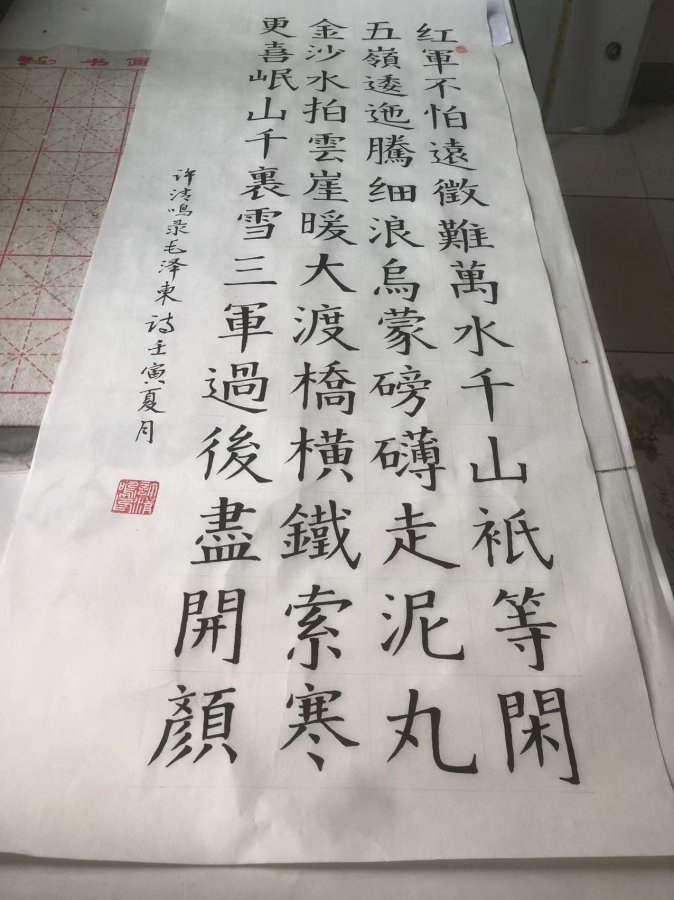 红軍不怕遠徵難萬水千山祇等閑
五嶺逶迤騰细浪烏蒙磅礴走泥丸
金沙水拍雲崖暖大渡橋橫鐵索寒
更喜岷山千裏雪三軍過後盡開顏
许清鸣录毛泽東诗壬寅夏月
书画